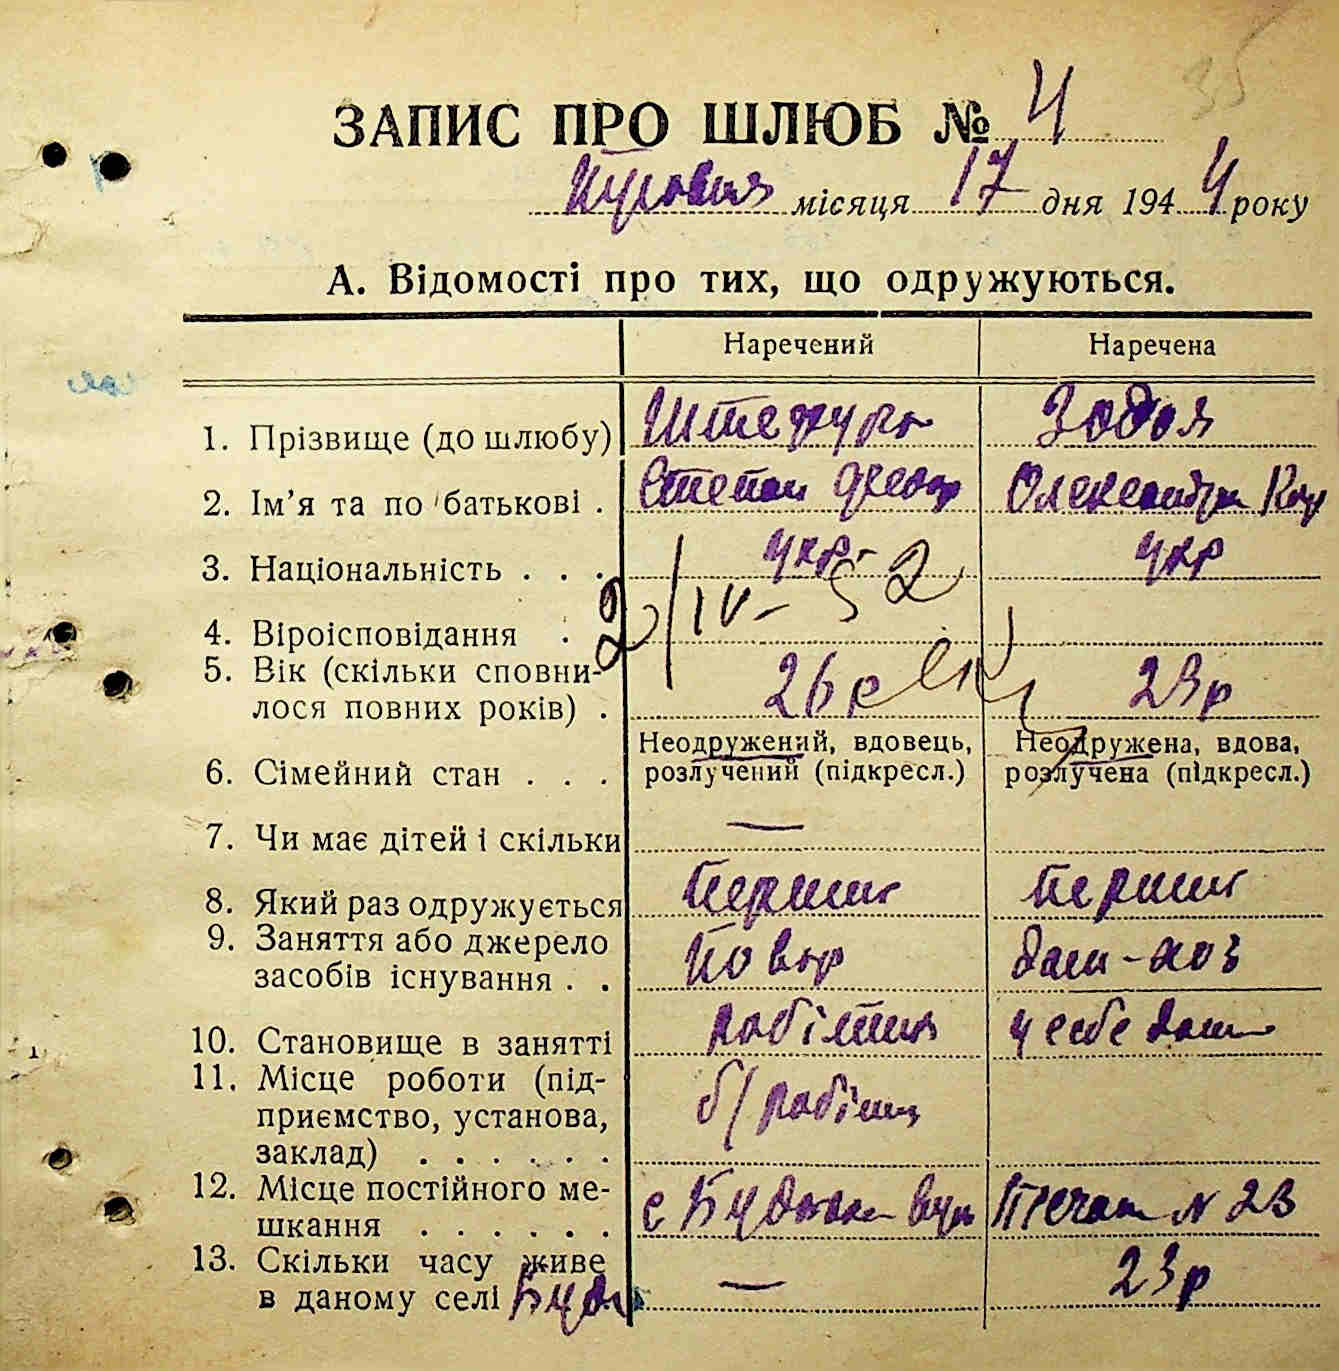 35
ЗАПИС ПРО ШЛЮБ № 4
місяця 17 дня 1944 року
А. Відомості про тих, що одружуються.
Наречений Наречена
1. Прізвище (до шлюбу) Зодоя
2. Ім'я та по батькові . Степан Федор Олександра
3. Національність . . . укр. укр
2/IV-52
4. Віроісповідання .
5. Вік (скільки сповни-
лося повних років) . 26 р 23 р
Неодружений, вдовець, Неодружена, вдова,
6. Сімейний стан . . . розлучений (підкресл.) розлучена (підкресл.)
7. Чи має дітей і скільки —
8. Який раз одружується перший перший
9. Заняття або джерело
засобів існування . . повар дом-хоз
10. Становище в занятті робітник у себе дома
11. Місце роботи (під-
приємство, установа, б/робітн
заклад) . . . . . .
12. Місце постійного ме-
шкання . . . . . . с вул N 23
13. Скільки часу живе
в даному селі — 23 р